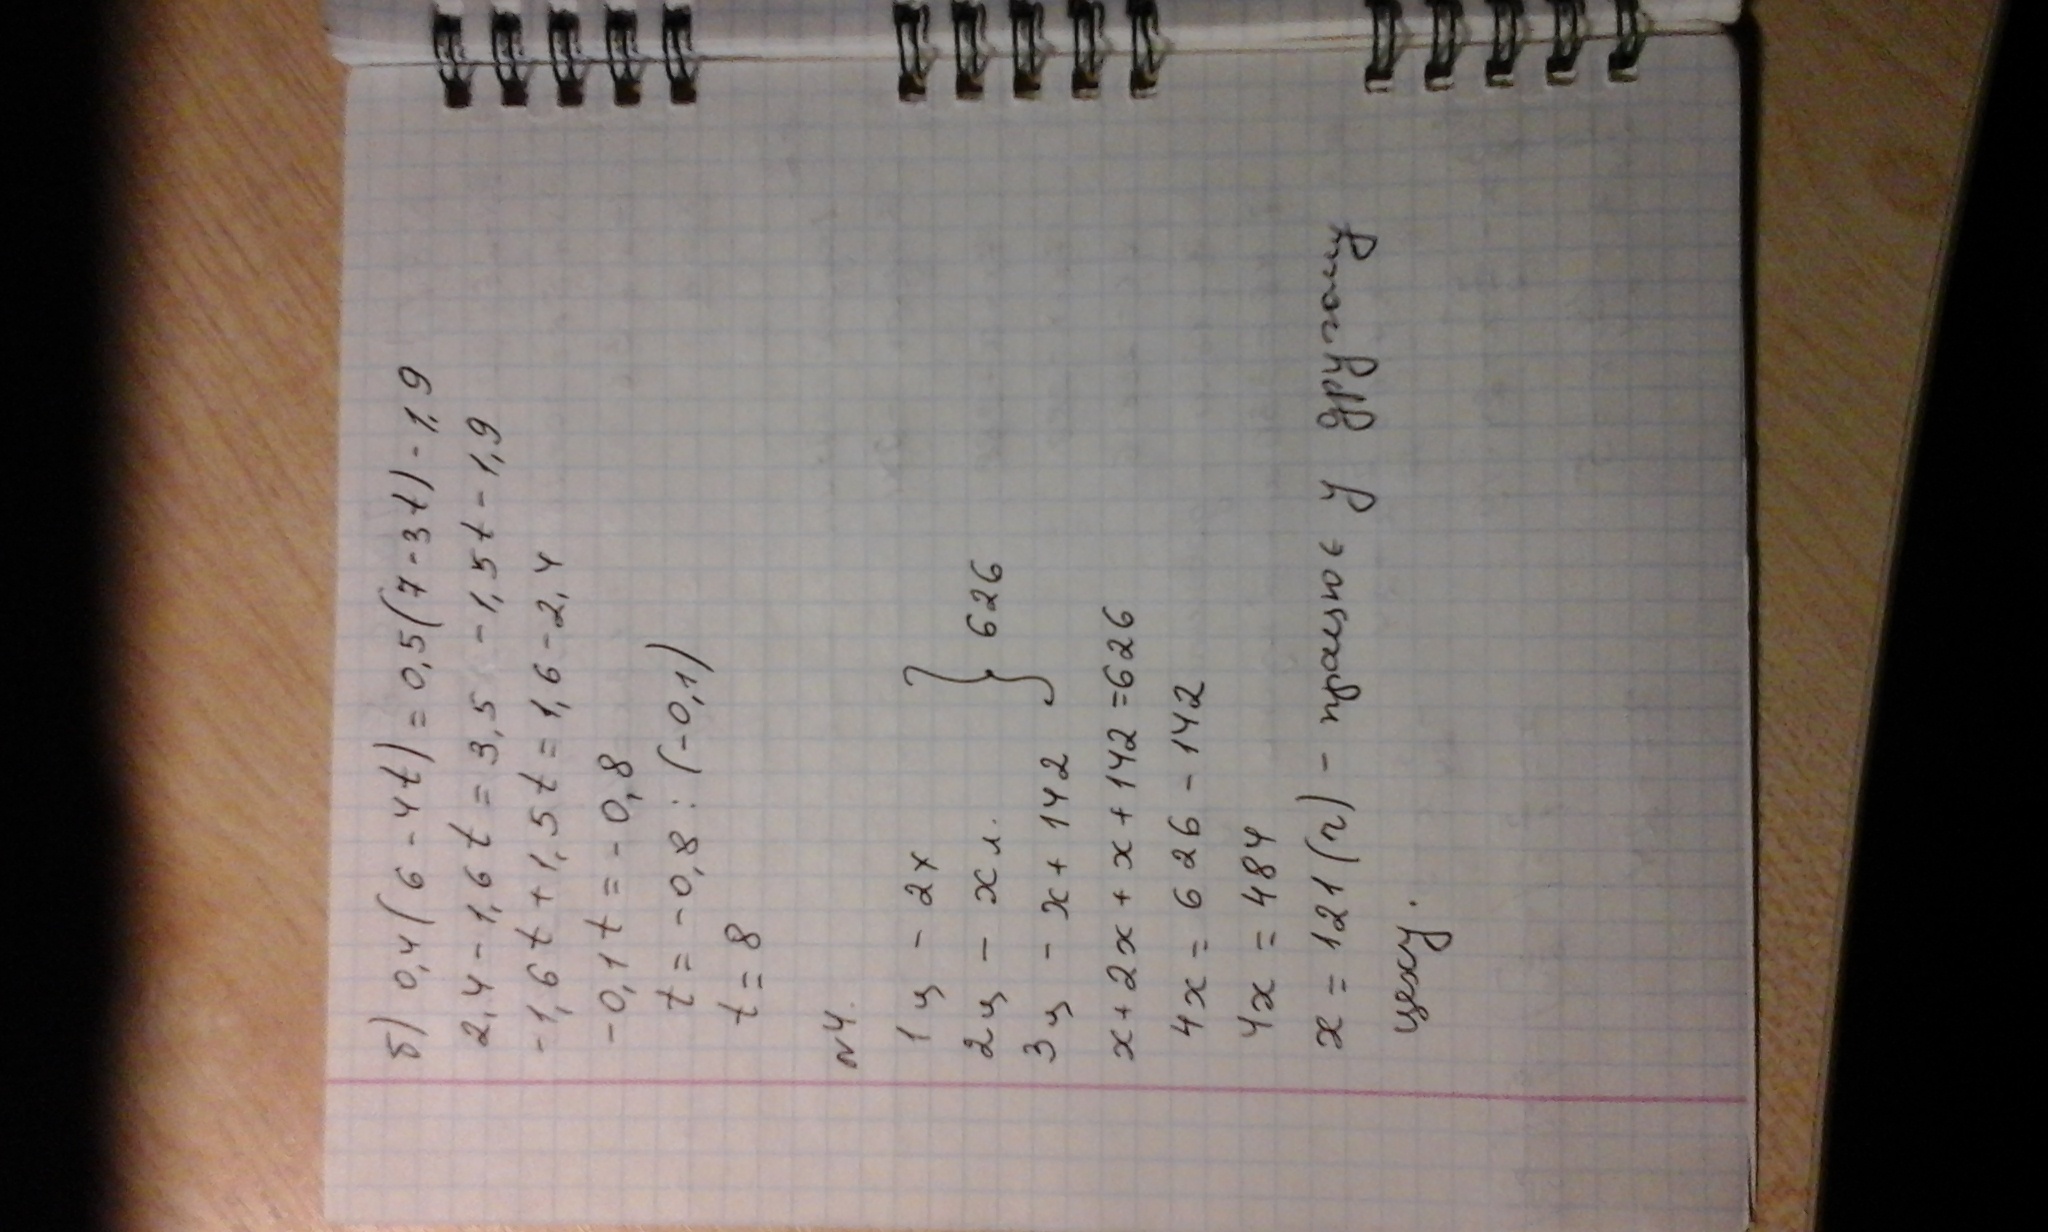 б) 0,4(6-4t)=0,5(7-3t)-1,9
2,4-1,6t=3,5-1,5t-1,9
-1,6t+1,5t=1,6-2,4
-0,1t=-0,8
t=-0,8:(-0,1)
t=8
№4.
1ц - 2x
2ц - x л. } 626
3ц - x+142
x+2x+x+142=626
4x=626-142
4x=484
x=121(л) - працює у другому
цеху.